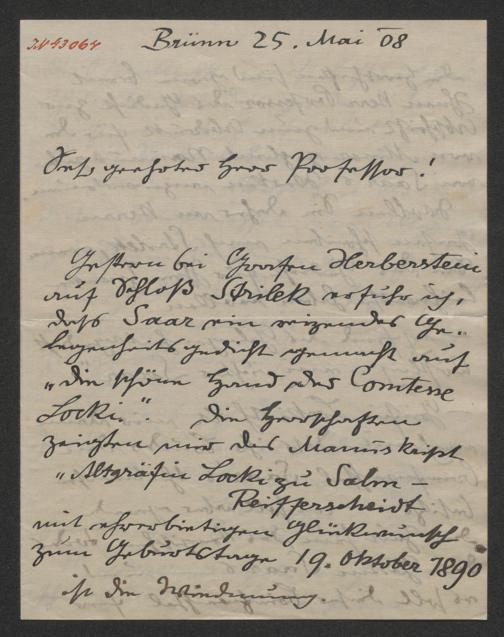 IN 43064
Brünn 25. Mai 08
Sehr geehrter Herr Professor!
Gestern bei Grafen Herberstein
auf Schloß Strilek erfuhr ich,
daß Saar ein reizendes Ge-
legenheitsgedicht gemacht auf
„die schöne Hand der Comtesse
Locki.“ Die Herrschaften
zeigten mir das Manuskript
„Altgräfin Locki zu Salm-
Reifferscheidt
mit ehrerbietigem Glückwunsch
zum Geburtstage 19. Oktober 1890
ist die Widmung.